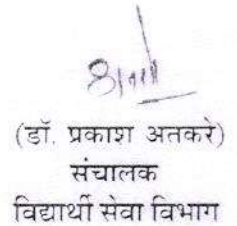 (डॉ. प्रकाश अतकरे)
संचालक
विद्यार्थी सेवा विभाग